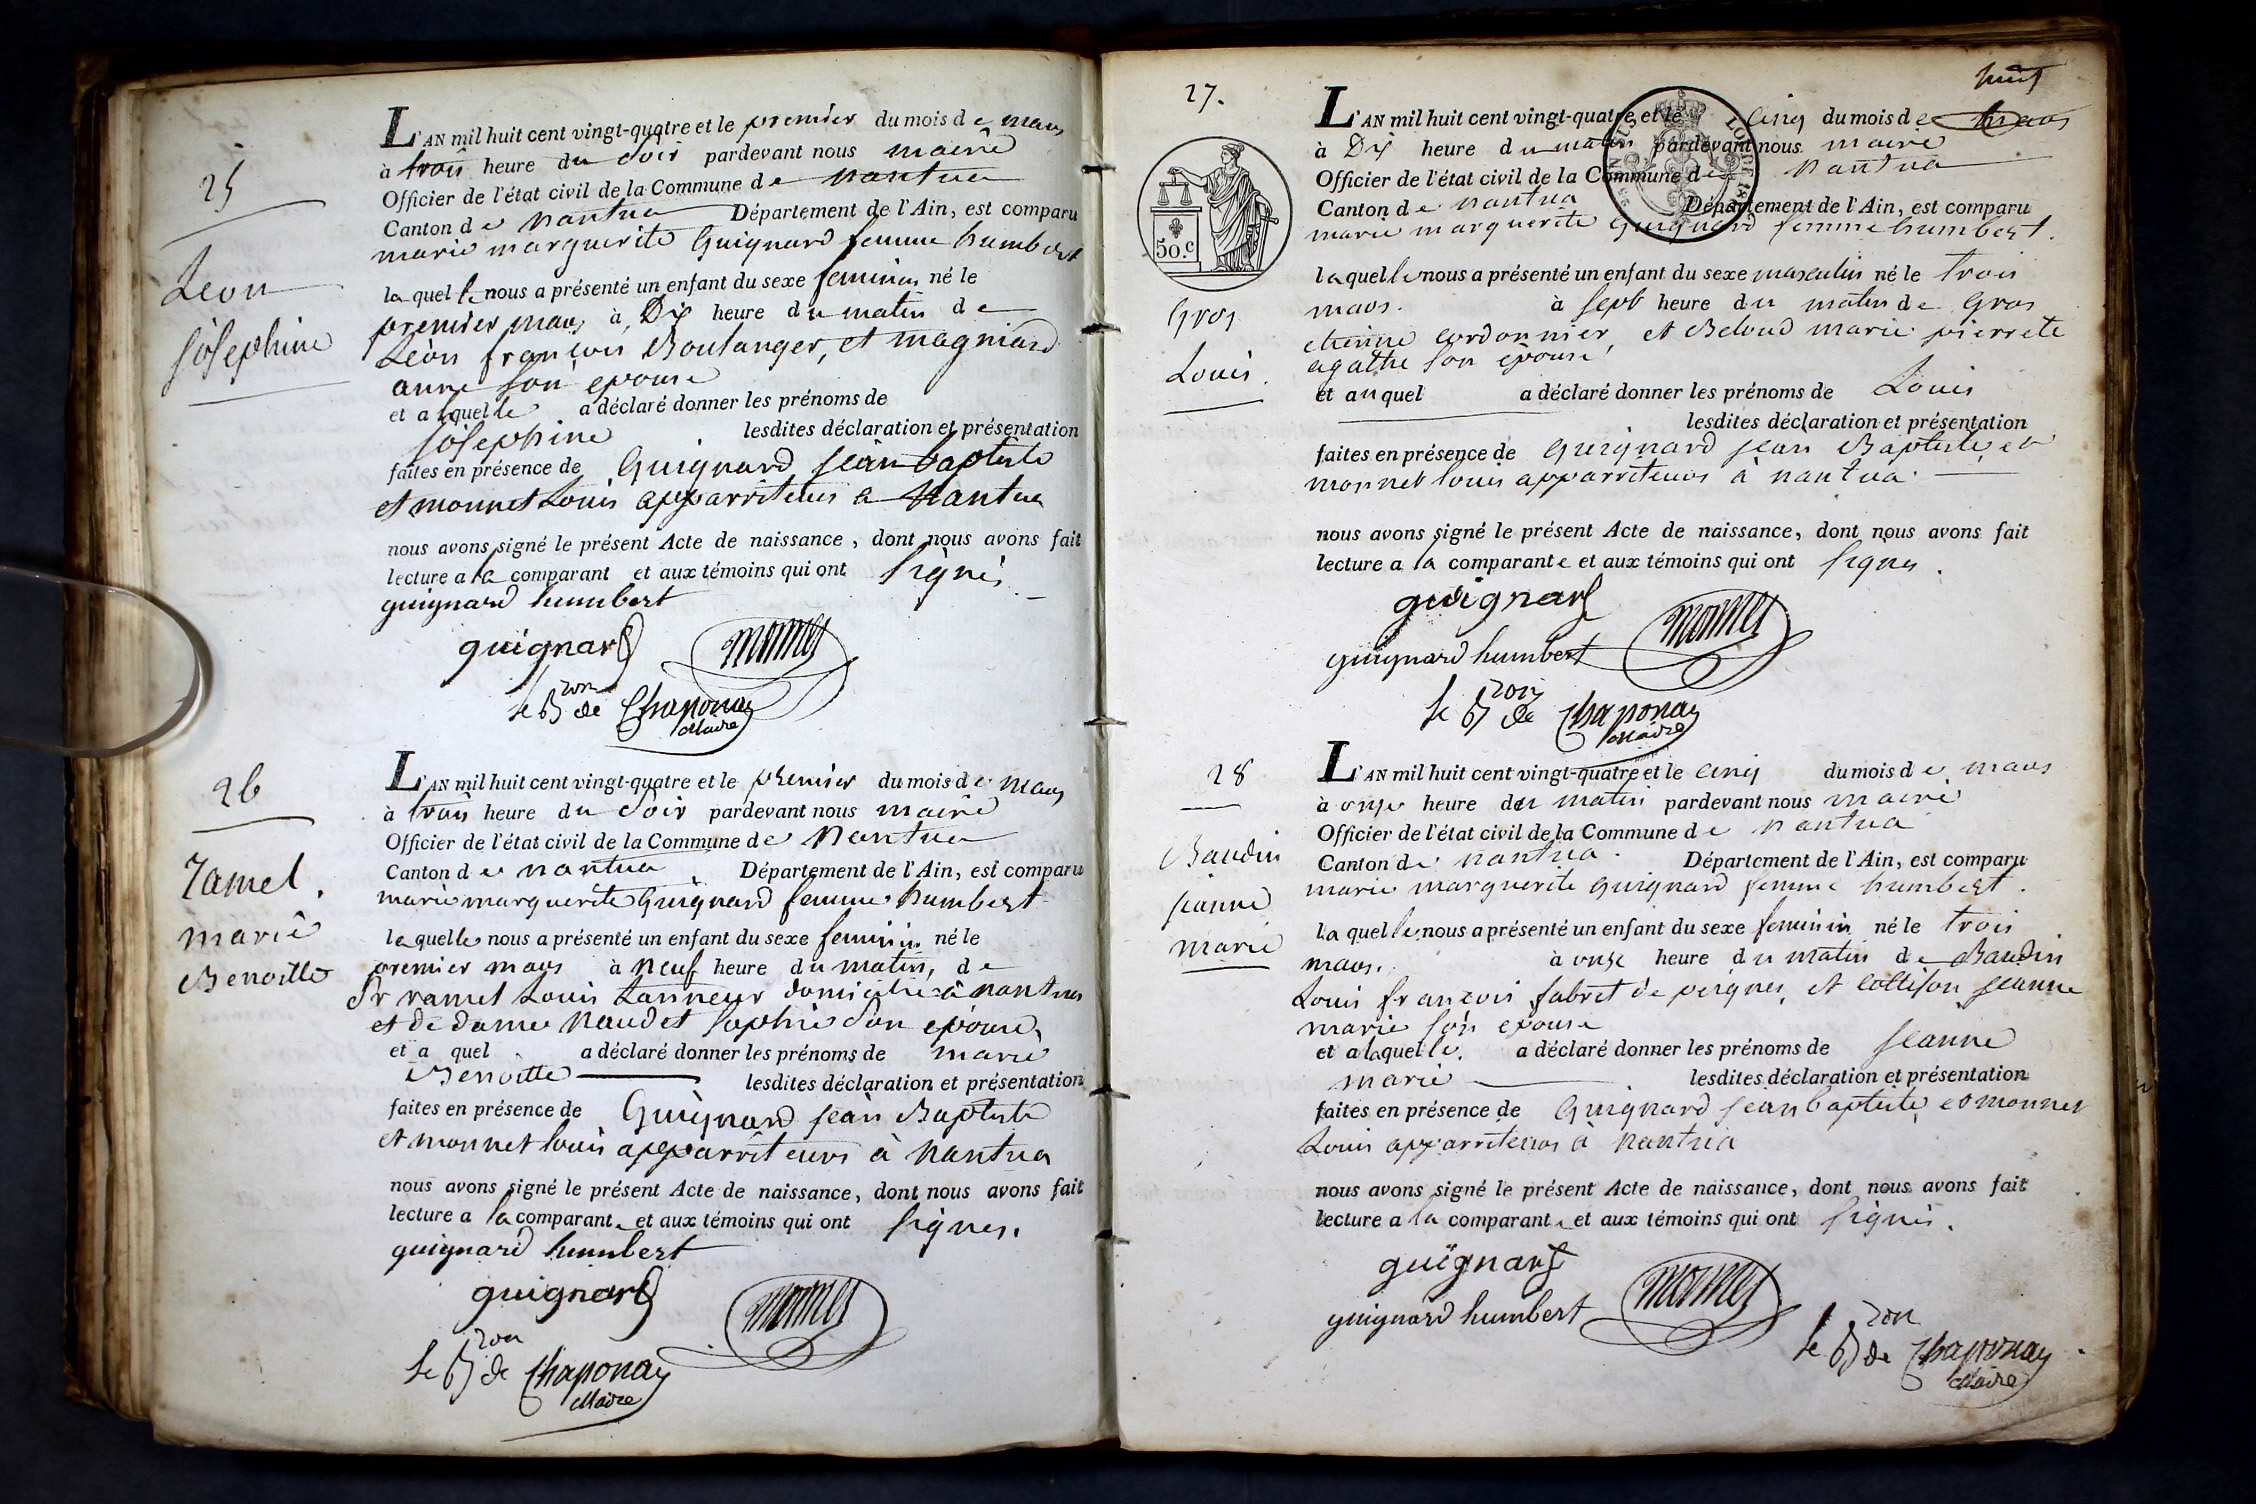 25
Léon
Joséphine
L'AN mil huit cent vingt-quatre et le premier du mois de mars
à trois heure du soir pardevant nous maire
Officier de l'état civil de la Commune de nantua
Canton de nantua Département de l'Ain, est comparu
marie marguerite Guignard femme humbert
laquelle nous a présenté un enfant du sexe feminin né le
premier mars à Dix heure du matin de
Léon françois Boulanger, et magniard
anne son epouse
et a laquelle a déclaré donner les prénoms de
joséphine lesdites déclaration et présentation
faites en présence de Guignard jean baptiste
et monnet Louis apparriteurs a Nantua
nous avons signé le présent Acte de naissance, dont nous avons fait
lecture a la comparant et aux témoins qui ont signés
guignard humbert
guignard monnet
le Bon de Chaponay
Maire
26
Ramel
marie
Benoitte
L'AN mil huit cent vingt-quatre et le premier du mois de mars
à trois heure du soir pardevant nous maire
Officier de l'état civil de la Commune de Nantua
Canton de nantua Département de l'Ain, est comparu
marie marguerite Guignard femme humbert
laquelle nous a présenté un enfant du sexe feminin né le
premier mars à neuf heure du matin, de
Sr ramel Louis tanneur domicilié à nantua
et de dame Naudet sophie son epouse,
et a quel a déclaré donner les prénoms de marie
Benoitte lesdites déclaration et présentation
faites en présence de Guignard jean Baptiste
et monnet louis apparriteurs à Nantua
nous avons signé le présent Acte de naissance, dont nous avons fait
lecture a la comparante et aux témoins qui ont signés.
guignard humbert
guignard monnet
le Bon de Chaponay
Maire
huit
27.
50.c
Gros
Louis.
L'AN mil huit cent vingt-quatre et le cinq du mois de mars
à Dix heure du matin pardevant nous maire
Officier de l'état civil de la Commune de nantua
Canton de nantua Département de l'Ain, est comparu
marie marguerite Guignard femme humbert.
laquelle nous a présenté un enfant du sexe masculin né le trois
mars. à sept heure du matin de Gros
etienne cordonnier, et Beloud marie pierrete
agathe son epouse
et auquel a déclaré donner les prénoms de Louis
lesdites déclaration et présentation
faites en présence de Guignard jean Baptiste, et
monnet louis apparriteurs à nantua.
nous avons signé le présent Acte de naissance, dont nous avons fait
lecture a la comparante et aux témoins qui ont signes.
guignard
guignard humbert monnet
le Bon de Chaponay
Maire
28
Baudin
jeanne
marie
L'AN mil huit cent vingt-quatre et le cinq du mois de mars
à onze heure du matin pardevant nous maire
Officier de l'état civil de la Commune de nantua
Canton de nantua. Département de l'Ain, est comparu
marie marguerite Guignard femme humbert.
laquelle nous a présenté un enfant du sexe feminin né le trois
mars. à onze heure du matin de Baudin
Louis françois fabret de peignes, et jeanne
marie son epouse
et a laquelle. a déclaré donner les prénoms de jeanne
marie lesdites déclaration et présentation
faites en présence de Guignard jean baptiste, et monnet
Louis apparriteurs à Nantua
nous avons signé le présent Acte de naissance, dont nous avons fait
lecture a la comparante et aux témoins qui ont signés.
guignard
guignard humbert monnet
le Bon de Chaponay
Maire